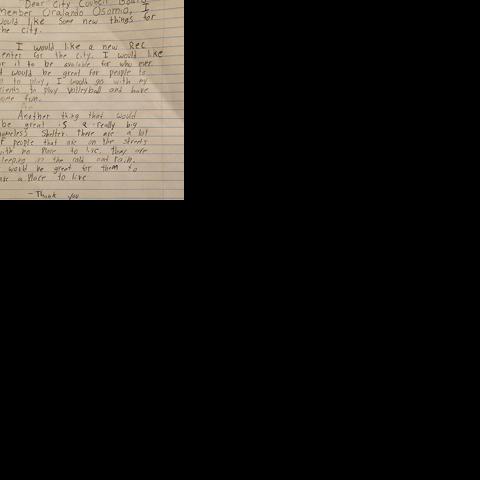 Dear City Council Board
Member Oralando Osornio, I
would like Some new things for
the city.
I would like a new Rec
enter for the city. I would like
or it to be available for who ever
would be great for people to
to play, I would go with my
riends to play Volleyball and have
ome fun.
Another thing that would
be great is a really big
Homeless Shelter. There are a lot
f people that are on the streets
with no Place to live. They are
leeping in the cold and rain.
would be great for them to
a Place to live
- Thank you